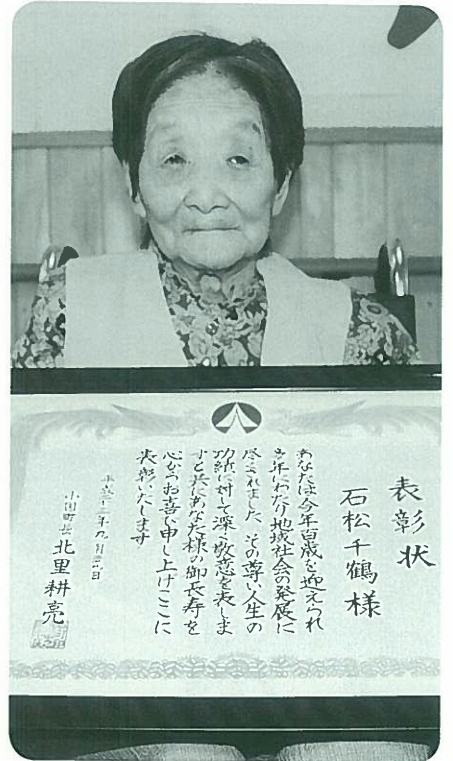 表彰状
石松千鶴様
あなたは今年百歳を迎えられ
多年にわたり地域社会の発展に
尽されました その尊い人生の
功績に対して深く敬意を表しま
すと共にあなた様の御長寿を
心からお喜び申し上げここに
表彰いたします
年九月
小国町長 北里耕亮